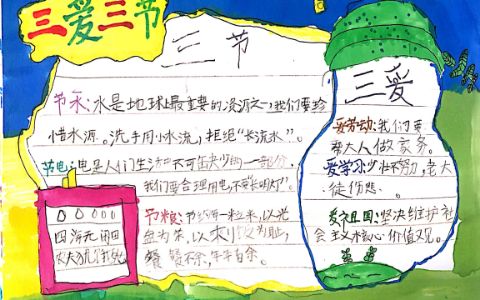 三爱三节
三节
节水:水是地球上最重要的资源之一,我们要珍
惜水源。洗手用小水流,拒绝“长流水”。
节电:电是人们生活中不可缺少的一部份,
我们要合理用电不要“长明灯”。
节粮:节约每一粒米,以光
盘为荣,以剩饭为耻,
餐餐不余,年年有余。
四海无闲田
农夫犹饿死
三爱
爱劳动:我们要
帮大人做家务。
爱学习:少壮不努力,老大
徒伤悲。
爱祖国:坚决维护社
会主义核心价值观。